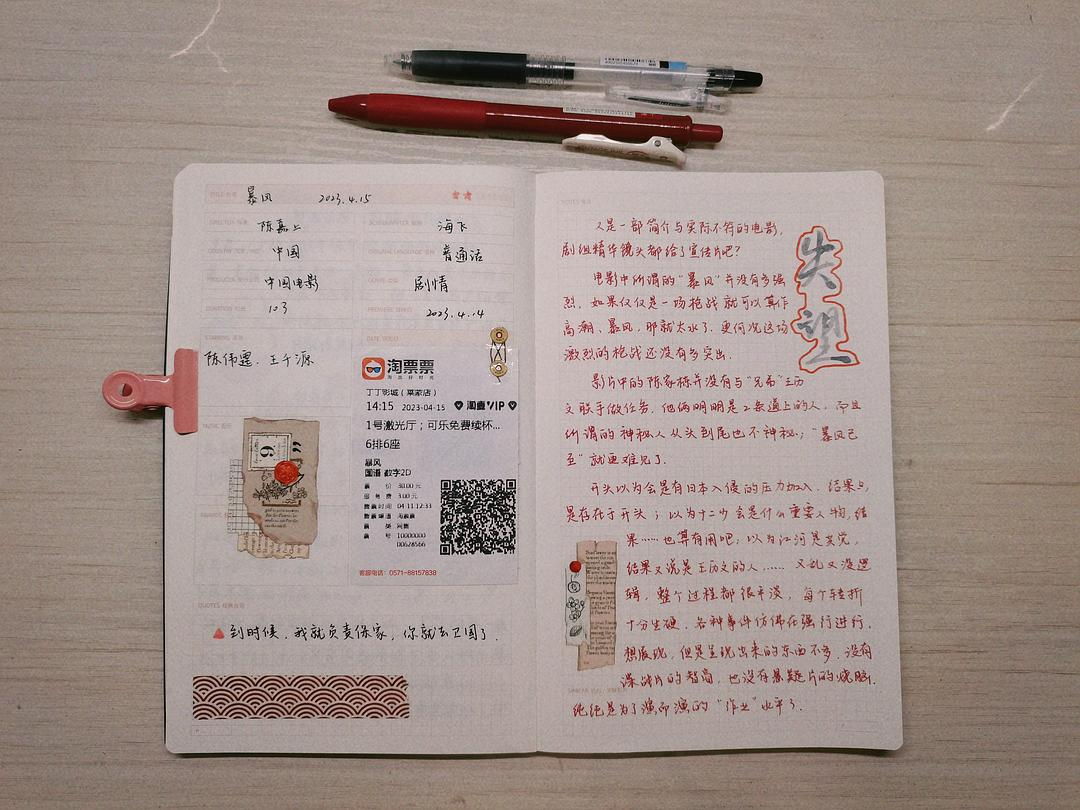 暴风 2023.4.15
陈嘉上 海飞
中国 普通话
中国电影 剧情
103 2023.4.14
陈伟霆、王千源
淘票票
丁丁影城（莱蒙店）
14:15 2023-04-15 淘票票VIP
1号激光厅；可乐免费续杯...
6排6座
暴风
国语 数字2D
票 价 30.00元
服 务 费 3.00元
04-11 12:33
10000000
00628566
客服电话：0571-88157838
QUOTES 经典台词
到时候，我就负责保家，你就去卫国了.
失望
又是一部简介与实际不符的电影，
剧组精华镜头都给了宣传片吧？
电影中所谓的“暴风”并没有多强
烈，如果仅仅是一场枪战就可以算作
高潮、暴风，那就太水了.更何况这场
激烈的枪战还没有多突出.
影片中的陈家栋并没有与“兄弟”王历
文联手做任务，他俩明明是2条道上的人，而且
所谓的神秘人从头到尾也不神秘；“暴风已
至”就更难见了.
开头以为会是有日本入侵的压力加入，结果只
是存在于开头；以为十二少会是什么重要人物，结
果……也算有用吧；以为江河是英党，
结果又说是王历文的人……又乱又没逻
辑，整个过程都很平淡，每个转折
十分生硬，各种事件仿佛在强行进行，
想展现，但是呈现出来的东西不多，没有
谍战片的智商，也没有悬疑片的烧脑.
纯纯是为了演而演的“作业”水平了.